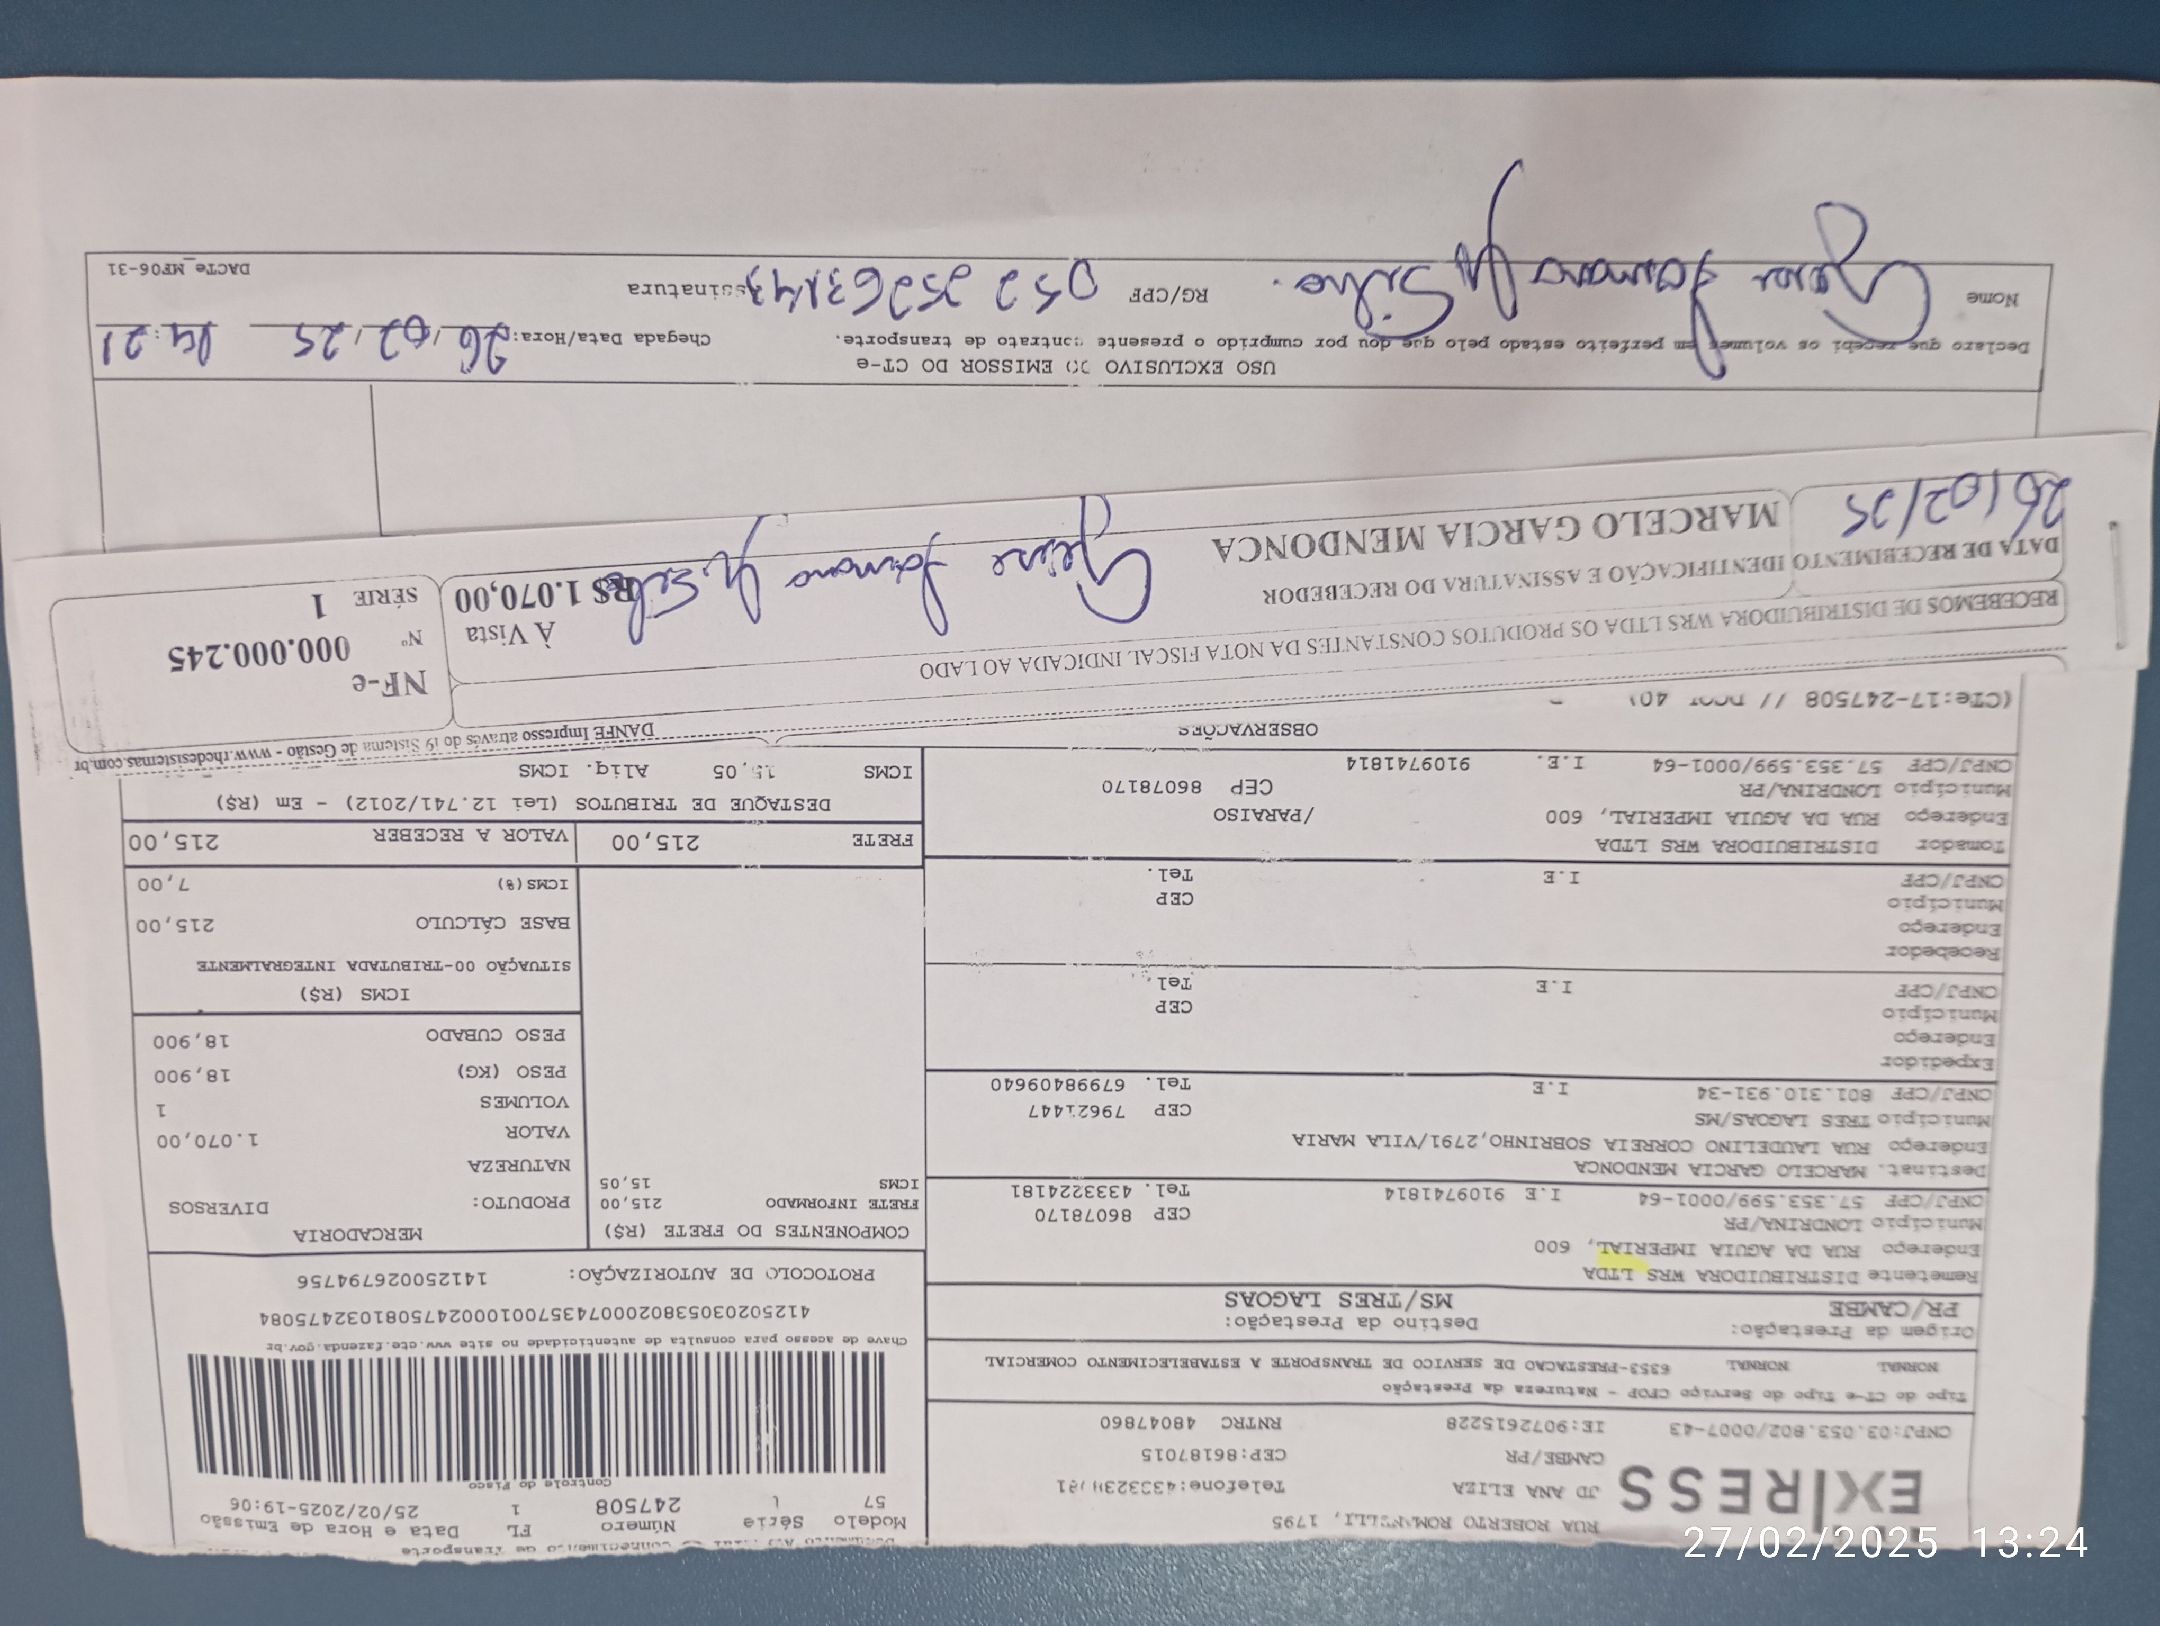 27/02/2025 13:24
EX|RESS
RUA ROBERTO
JD ANA ELIZA
CAMBE/PR
CEP:86187015
CNPJ:03.053.802/0007-43 IE:9072615228 RNTRC 48047860
Tipo do CT-e Tipo do Serviço CFOP - Natureza da Prestação
NORMAL NORMAL 6353-PRESTACAO DE SERVICO DE TRANSPORTE A ESTABELECIMENTO COMERCIAL
Origem da Prestação: Destino da Prestação:
PR/CAMBE MS/TRES LAGOAS
Remetente DISTRIBUIDORA WRS LTDA
Endereço RUA DA AGUIA IMPERIAL, 600
Município LONDRINA/PR CEP 86078170
CNPJ/CPF 57.353.599/0001-64 I.E 9109741814 Tel. 433322418​1
Destinat. MARCELO GARCIA MENDONCA
Endereço RUA LAUDELINO CORREIA SOBRINHO,2791/VILA MARIA
Município TRES LAGOAS/MS CEP 79621447
CNPJ/CPF 801.310.931-34 I.E Tel. 67998409640
Expedidor
Endereço
Município CEP
CNPJ/CPF I.E Tel.
Recebedor
Endereço
Município CEP
CNPJ/CPF I.E Tel.
Tomador DISTRIBUIDORA WRS LTDA
Endereço RUA DA AGUIA IMPERIAL, 600 /PARAISO
Município LONDRINA/PR CEP 86078170
CNPJ/CPF 57.353.599/0001-64 I.E. 9109741814
OBSERVAÇÕES
(CTe:17-247508 //
Modelo Série Número FL Data e Hora de Emissão
57 247508 1 25/02/2025-19:06
Controle do Fisco
Chave de acesso para consulta de autenticidade no site www.cte.fazenda.gov.br
41250203053802000743570010002475081032475084
PROTOCOLO DE AUTORIZAÇÃO: 141250026794756
COMPONENTES DO FRETE (R$)
FRETE INFORMADO 215,00
ICMS 15,05
MERCADORIA
PRODUTO: DIVERSOS
NATUREZA
VALOR 1.070,00
VOLUMES 1
PESO (KG) 18,900
PESO CUBADO 18,900
ICMS (R$)
SITUAÇÃO 00-TRIBUTADA INTEGRALMENTE
BASE CÁLCULO 215,00
ICMS(%) 7,00
FRETE 215,00 VALOR A RECEBER 215,00
DESTAQUE DE TRIBUTOS (Lei 12.741/2012) - Em (R$)
ICMS 15,05 Aliq. ICMS
DANFE Impresso através do Sistema de Gestão - www.rhedesistemas.com.br
RECEBEMOS DE DISTRIBUIDORA WRS LTDA OS PRODUTOS CONSTANTES DA NOTA FISCAL INDICADA AO LADO
DATA DE RECEBIMENTO IDENTIFICAÇÃO E ASSINATURA DO RECEBEDOR
26/02/25 MARCELO GARCIA MENDONCA
À Vista
R$ 1.070,00
NF-e
Nº 000.000.245
SÉRIE 1
USO EXCLUSIVO DO EMISSOR DO CT-e
Declaro que recebi os volumes em perfeito estado pelo que dou por cumprido o presente contrato de transporte.
Chegada Data/Hora: 26/02/25 14:21
Nome RG/CPF Assinatura
DACTe_MF06-31